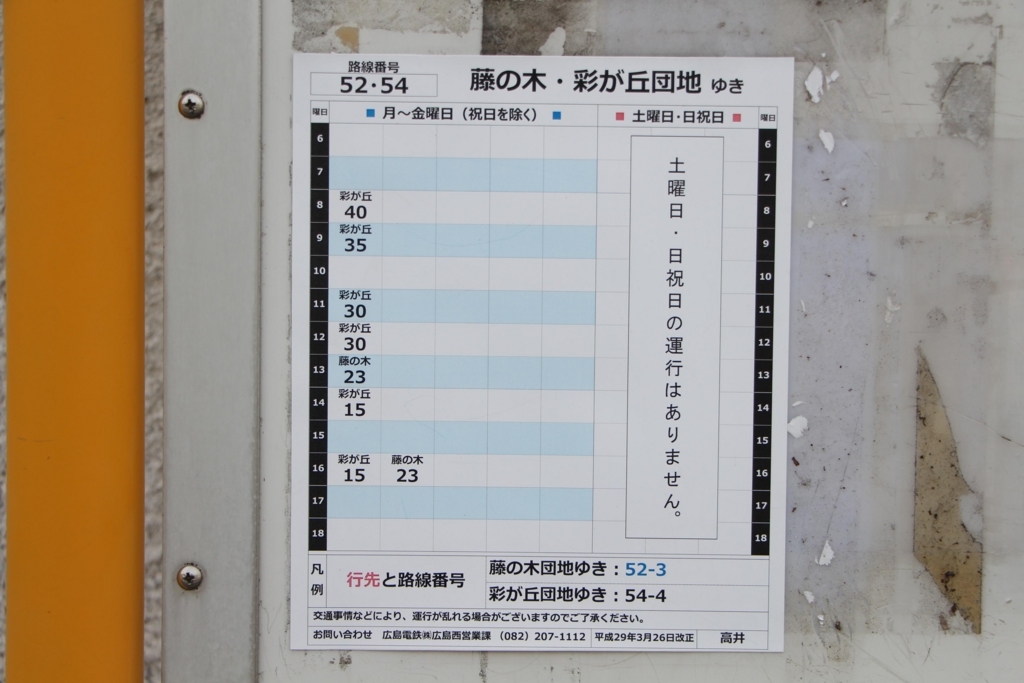 路線番号
52・54
藤の木・彩が丘団地 ゆき
曜日 ■ 月～金曜日（祝日を除く） ■ ■ 土曜日・日祝日 ■ 曜日
6 6
7 7
8 彩が丘 40 8
9 彩が丘 35 9
10 10
11 彩が丘 30 11
12 彩が丘 30 12
13 藤の木 23 13
14 彩が丘 15 14
15 15
16 彩が丘 15 藤の木 23 16
17 17
18 18
土曜日・日祝日の運行はありません。
凡例
行先と路線番号
藤の木団地ゆき：52-3
彩が丘団地ゆき：54-4
交通事情などにより、運行が乱れる場合がございますのでご了承ください。
お問い合わせ 広島電鉄㈱広島西営業課 （082）207-1112 平成29年3月26日改正 高井